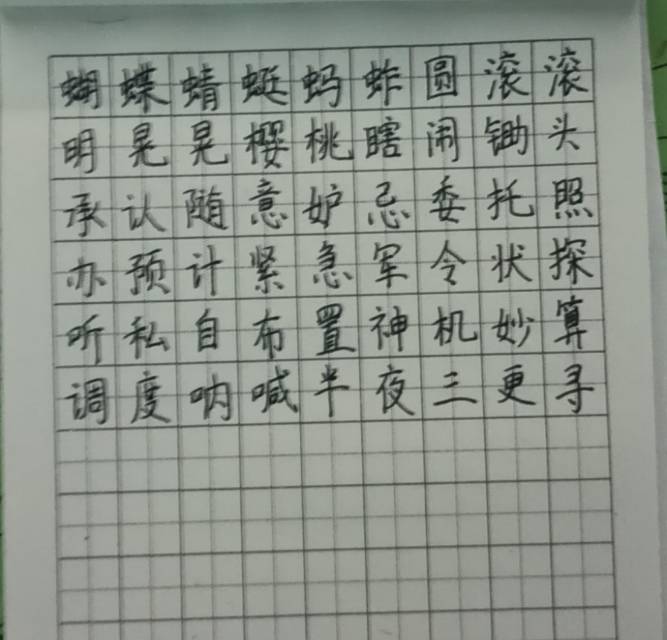 蝴蝶蜻蜓蚂蚱圆滚滚
明晃晃樱桃瞎闹锄头
承认随意妒忌委托照
办预计紧急军令状探
听私自布置神机妙算
调度呐喊半夜三更寻